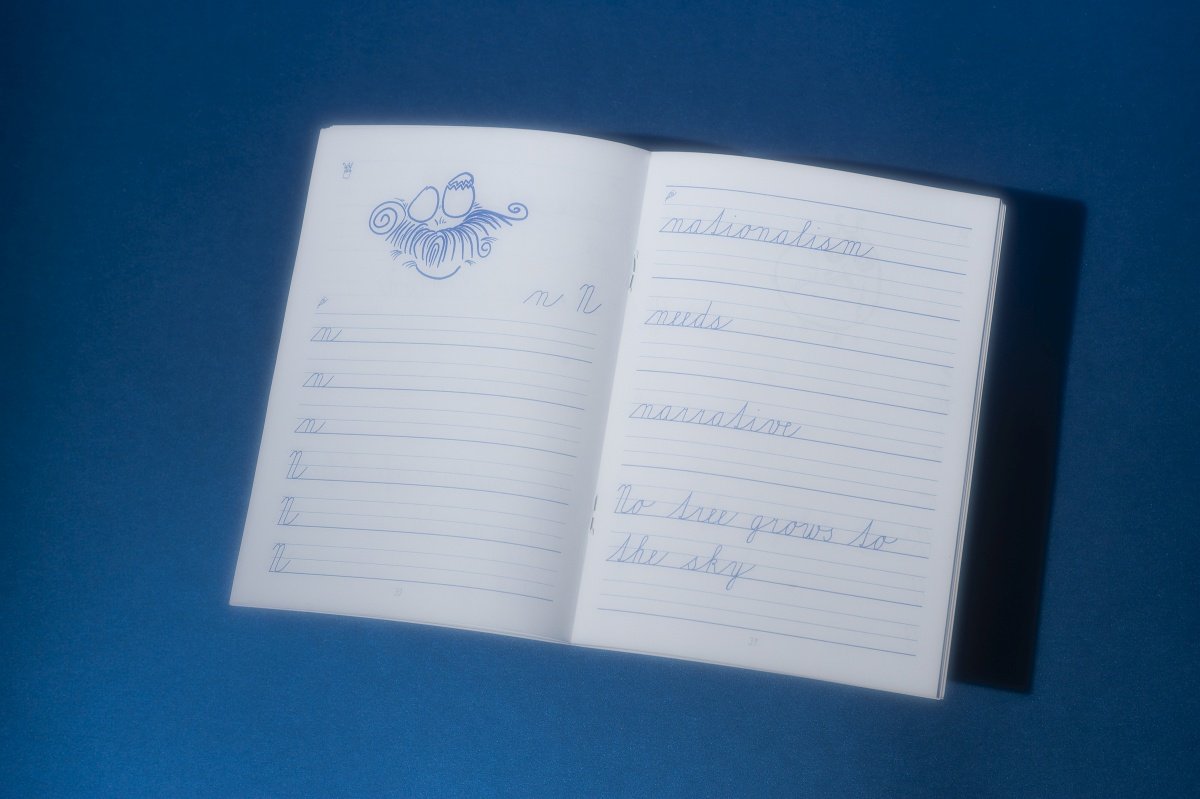 n N
n
n
n
N
N
N
nationalism
needs
narrative
No tree grows to
the sky